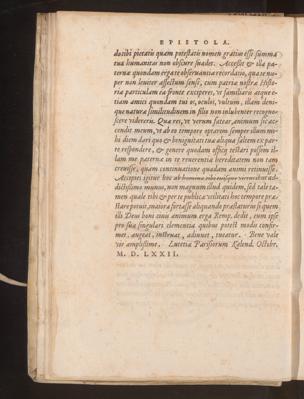 EPISTOLA.
ducibi pietatis quàm potestatis nomen gratius esse summa
tua humanitas non obscurè suadet. Accessit & illa pa-
terna quædam erga te observantiæ recordatio, qua te nu-
per non leviter affectum sensi, cum patria nostræ Histo-
riæ particulam ea fronte exciperes, ut familiaris atque e-
tiam amici quondam tui os, oculos, vultum, illam deni-
que naturæ similitudinem in filio non inlubenter recogno-
scere viderere. Quæ res, ut verum fatear, animum sic ac-
cendit meum, ut ab eo tempore optarem semper illum mi-
hi diem dari quo & benignitati tuæ aliqua saltem ex par-
te respondere, & genere quodam officij testari possem il-
lam me paternæ in te reverentiæ hereditatem non tam
crevisse, quàm continuatione quadam animi retinuisse.
Accipies igitur hoc ab homine tibi ad-
dictissimo munus, non magnum illud quidem, sed tale ta-
men quale tibi & per te publicæ utilitati hoc tempore præ-
stare potui, maiora fortasse aliquando præstaturus si quem
illi Deus boni civis animum erga Remp. dedit, eum ipse
pro sua singulari clementia quibus potest modis confir-
met, augeat, instruat, adiuvet, tueatur. Bene vale
vir amplissime. Lutetiæ Parisiorum Kalend. Octobr.
M. D. LXXII.